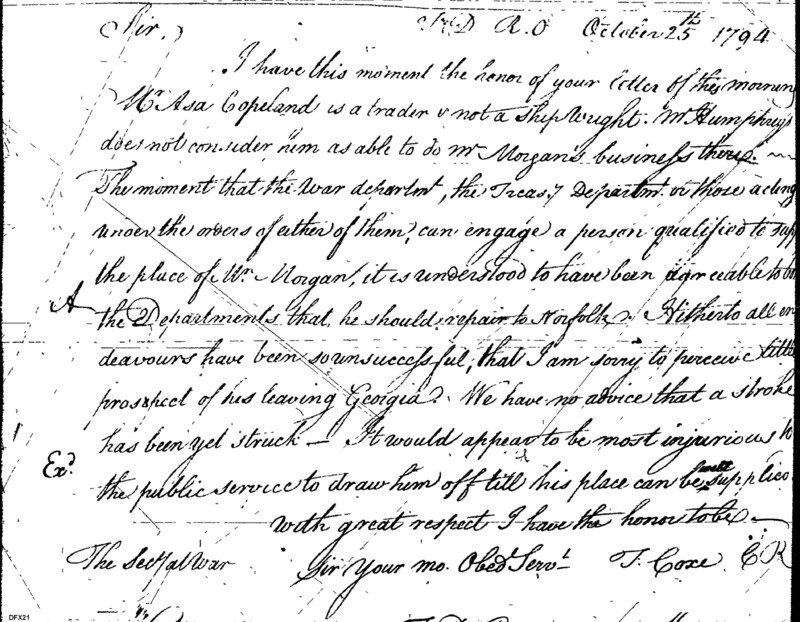 Sir, T.D R.O October 25th 1794
I have this moment the honor of your letter of this morning
Mr Asa Copeland is a trader & not a Ship Wright. Mr Humphreys
does not consider him as able to do Mr Morgans business there.
The moment that the War departmt, the Treasy Departmt. or those acting
under the orders of either of them, can engage a person qualified to supp
the place of Mr. Morgan, it is understood to have been agreeable to bo
A
the Departments that he should repair to Norfolk. Hitherto all en
deavours have been so unsuccessful, that I am sorry to perceive little
prospect of his leaving Georgia. We have no advice that a stroke
has been yet struck — It would appear to be most injurious to
Exd.
the public service to draw him off till his place can be well supplied
with great respect I have the honor to be
The Secy at War Sir Your mo. Obedt Servt T. Coxe C R
DFX21